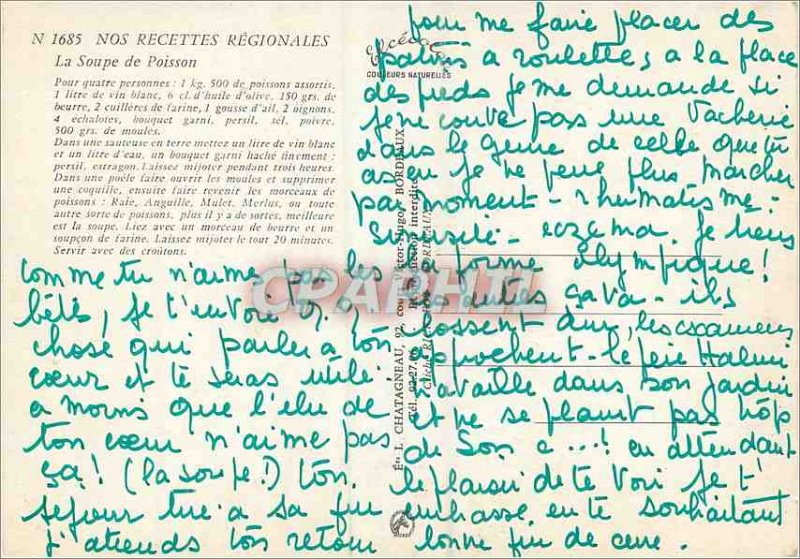 N 1685 NOS RECETTES RÉGIONALES
La Soupe de Poisson
Pour quatre personnes : 1 kg. 500 de poissons assortis,
1 litre de vin blanc, 6 cl. d'huile d'olive, 150 grs. de
beurre, 2 cuillères de farine, 1 gousse d'ail, 2 oignons,
4 échalotes, bouquet garni, persil, sel, poivre,
500 grs. de moules.
Dans une sauteuse en terre mettez un litre de vin blanc
et un litre d'eau, un bouquet garni haché finement :
persil, estragon. Laissez mijoter pendant trois heures.
Dans une poêle faire ouvrir les moules et supprimer
une coquille, ensuite faire revenir les morceaux de
poissons : Raie, Anguille, Mulet, Merlus, ou toute
autre sorte de poissons, plus il y a de sortes, meilleure
est la soupe. Liez avec un morceau de beurre et un
soupçon de farine. Laissez mijoter le tout 20 minutes.
Servir avec des croûtons.
Comme tu n'aime pas les
bétés, je t'envoi
chose qui parlera à ton
cœur et te seras utile
a moins que l'élu de
ton cœur n'aime pas
ça! (la soupe!) ton
sejour tire a sa fin
j'attends ton retour
pour me faire placer des
patins a roulettes, a la place
des pieds je me demande si
je ne couve pas une vacherie
dans le genre de celle que tu
as eu je ne peux plus marcher
par moment - rhumatisme -
Sinusite - eczema je tiens
la forme olympique!
les autres sava - ils
bossent dur, les examens
approchent - le père
travaille dans son jardin
et ne se plaint pas trop
de son c...! en attendant
le plaisir de te voir je t'
embrasse en te souhaitant
bonne fin de cure.
COULEURS NATURELLES
Éts L. CHATAGNEAU, 92, cours Victor-Hugo, BORDEAUX
CPAPHIL